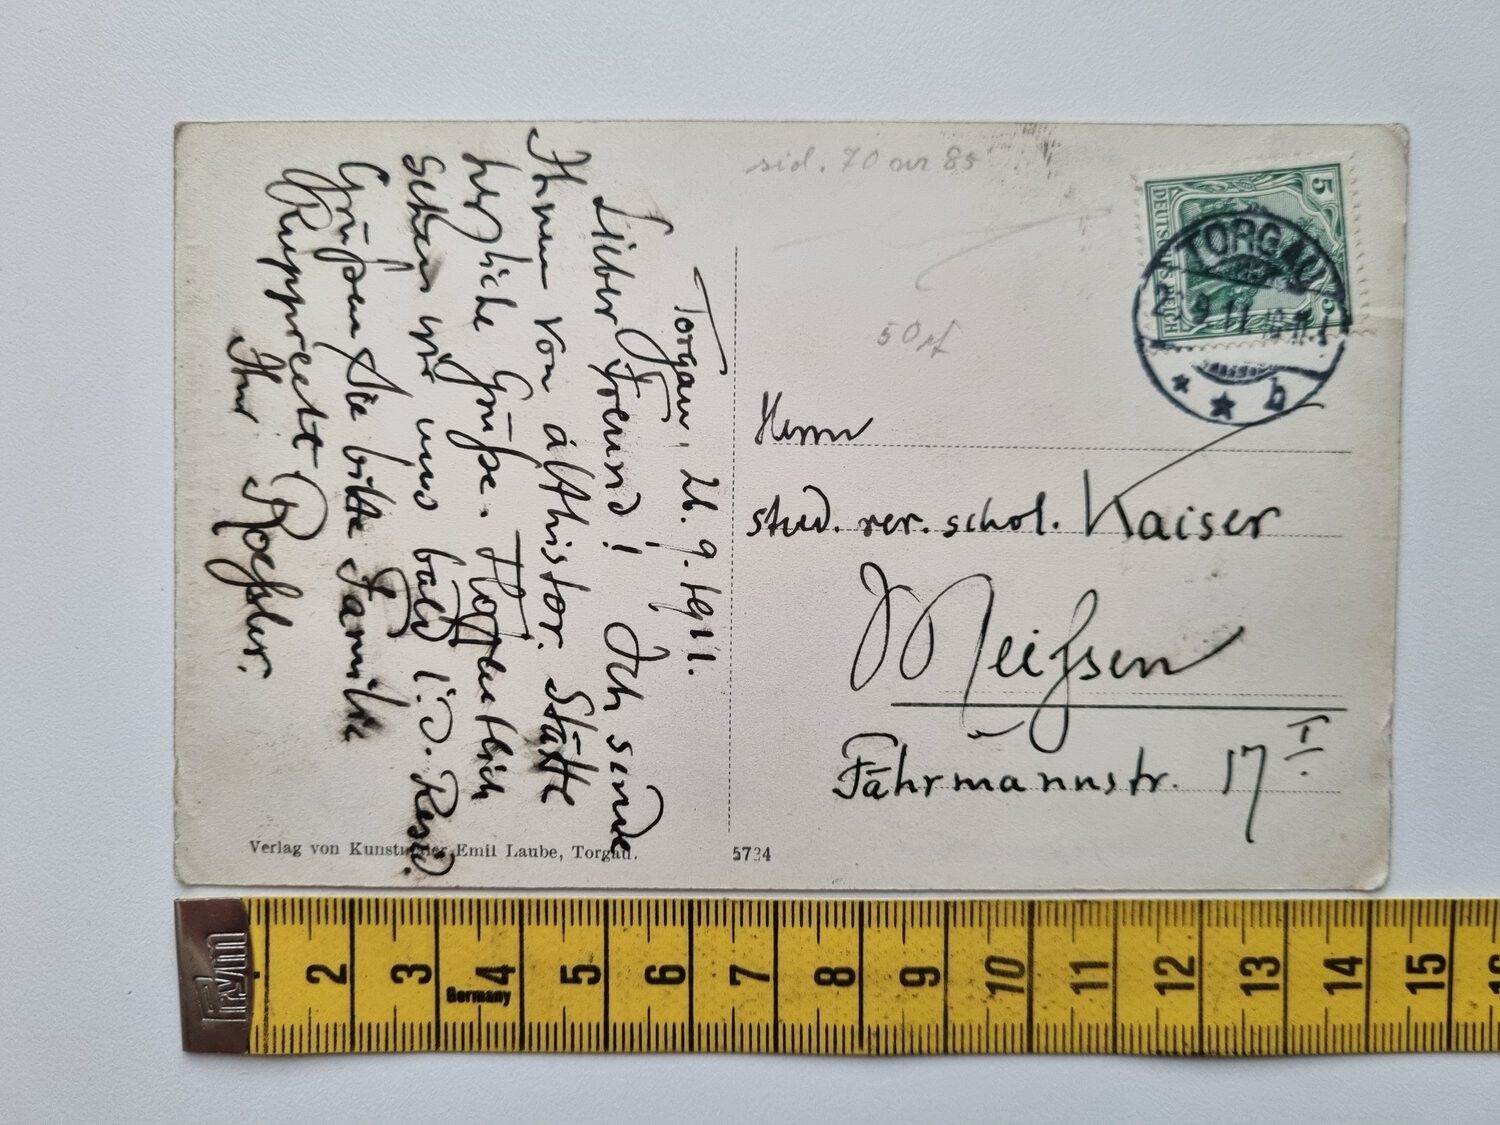 Torgau, 26. 9. 1911.
Lieber Freund! Ich sende
Ihnen von althistor. Stätte
herzliche Grüße. Hoffentlich
sehen wir uns bald i. d. Resid.
Grüßen Sie bitte Familie
Rupprecht
Ihr Roeßler.
Verlag von Kunstmaler Emil Laube, Torgau.
5734
sid. 70 nr 85
50 pf
5
DEUTSCHES REICH
5
TORGAU
9 11
* * b
Herrn
stud. rer. schol. Kaiser
Meißsen
Fährmannstr. 17 I
Prym
2 3 4 5 6 7 8 9 10 11 12 13 14 15 16
Germany